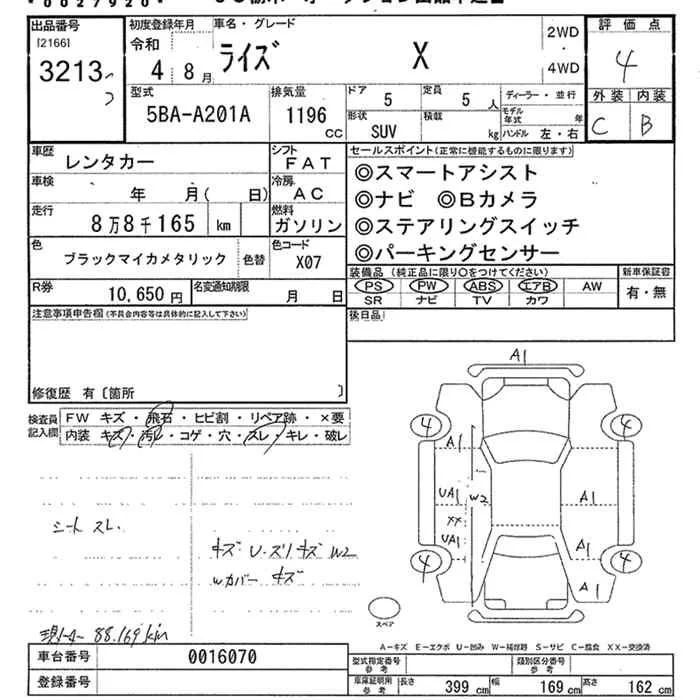 * 0 0 2 7 9 2 0 *
出品番号 初度登録年月 車名・グレード 2WD 評価点
[2166]
3213 令和 4 8月 ライズ X 4WD 4
型式 排気量 ドア 定員 ディーラー・並行 外装 内装
5BA-A201A 1196 CC 5 5人 モデル年式 年 C B
形状 SUV 積載 kg ハンドル 左・右
車歴 レンタカー シフト FAT セールスポイント(正常に機能するものに限ります)
車検 年 月( 日) 冷房 AC ◎スマートアシスト
走行 8万8千165 km 燃料 ガソリン ◎ナビ ◎Bカメラ
◎ステアリングスイッチ
色 ブラックマイカメタリック 色替 色コード X07 ◎パーキングセンサー
装備品(純正品に限り○をつけてください) 新車保証書
R券 10,650円 名変通知期限 月 日 PS PW ABS エアB AW 有・無
SR ナビ TV カワ
注意事項申告欄(不具合内容等は具体的に記入して下さい) 後日品
修復歴 有〔箇所 〕
検査員記入欄 FW キズ・飛石・ヒビ割・リペア跡・×要
内装 キズ・汚レ・コゲ・穴・スレ・キレ・破レ
A1
4 4
A1
UA1 W2 A1
XX
UA1 A1
4 4
A1
シート スレ
キズ U・スリキズ W2
Wカバー キズ
スペア
現メーター 88,169km
A-キズ E-エクボ U-凹み W-補修跡 S-サビ C-腐食 XX-交換済
車台番号 0016070 型式指定番号 参考 類別区分番号 参考
登録番号 車庫証明用 参考 長さ 399cm 幅 169cm 高さ 162cm